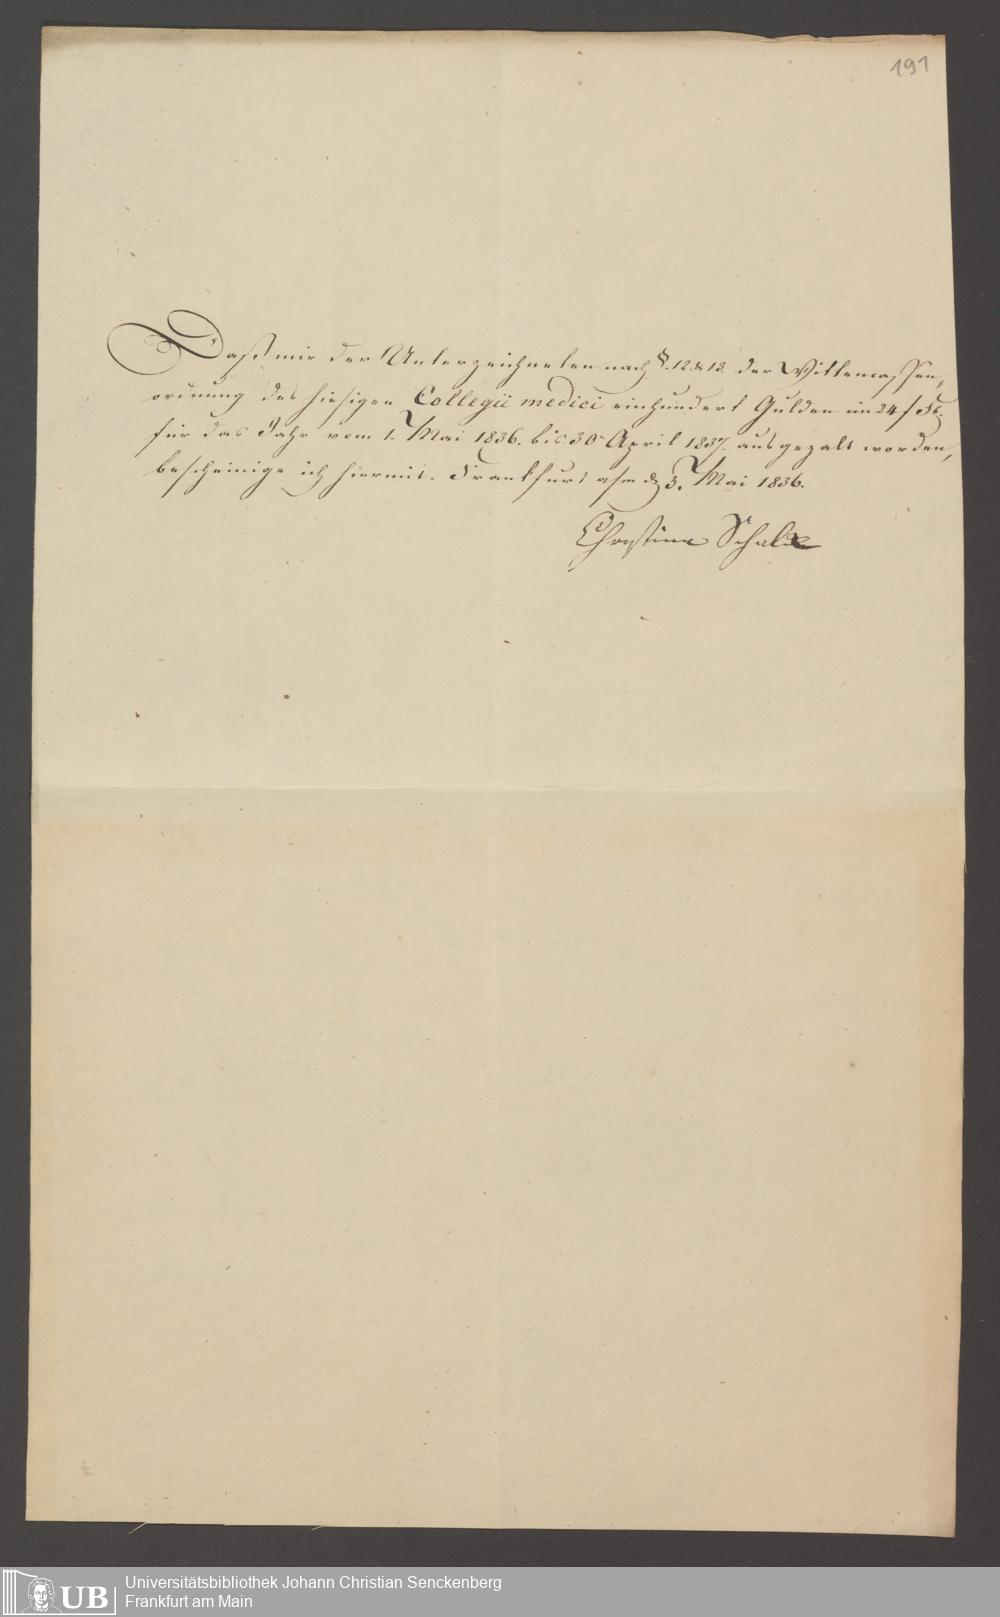 191
Daß mir der Unterzeichneten nach §. 12 & 13. der Wittwencassen,
ordnung des hiesigen Collegii medici einhundert Gulden im 24 f Fß
für das Jahr vom 1. Mai 1836. bis 30n April 1837. ausgezalt worden,
bescheinige ich hiermit. Frankfurt a/m d 3. Mai 1836.
Christine Schalk
UB
Universitätsbibliothek Johann Christian Senckenberg
Frankfurt am Main